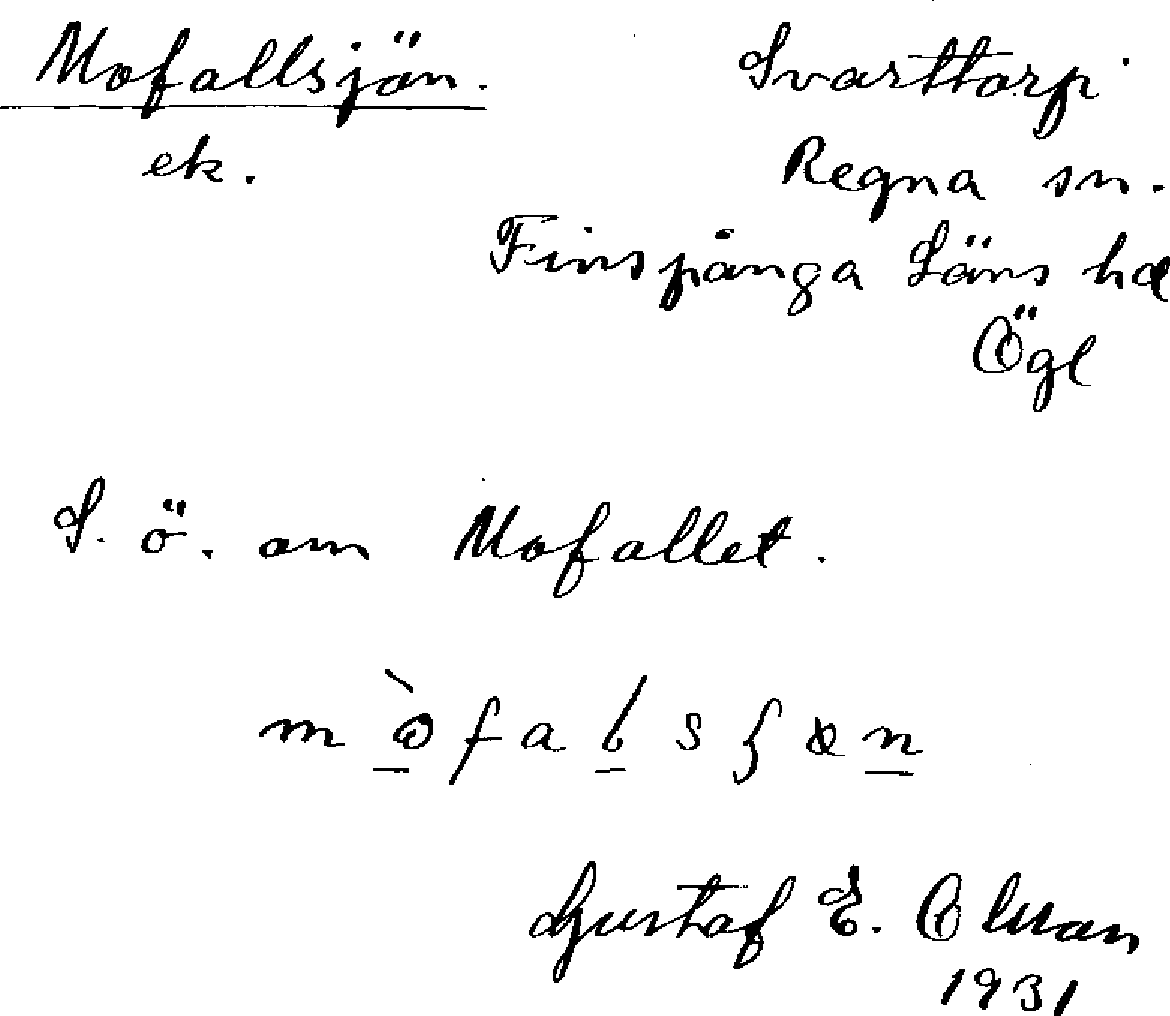 Mofallsjön.
Svarttorp
ek.
Regna sn.
Finspånga Läns hd
Ögl
S. ö. om Mofallet.
Gustaf E. Olsson
1931